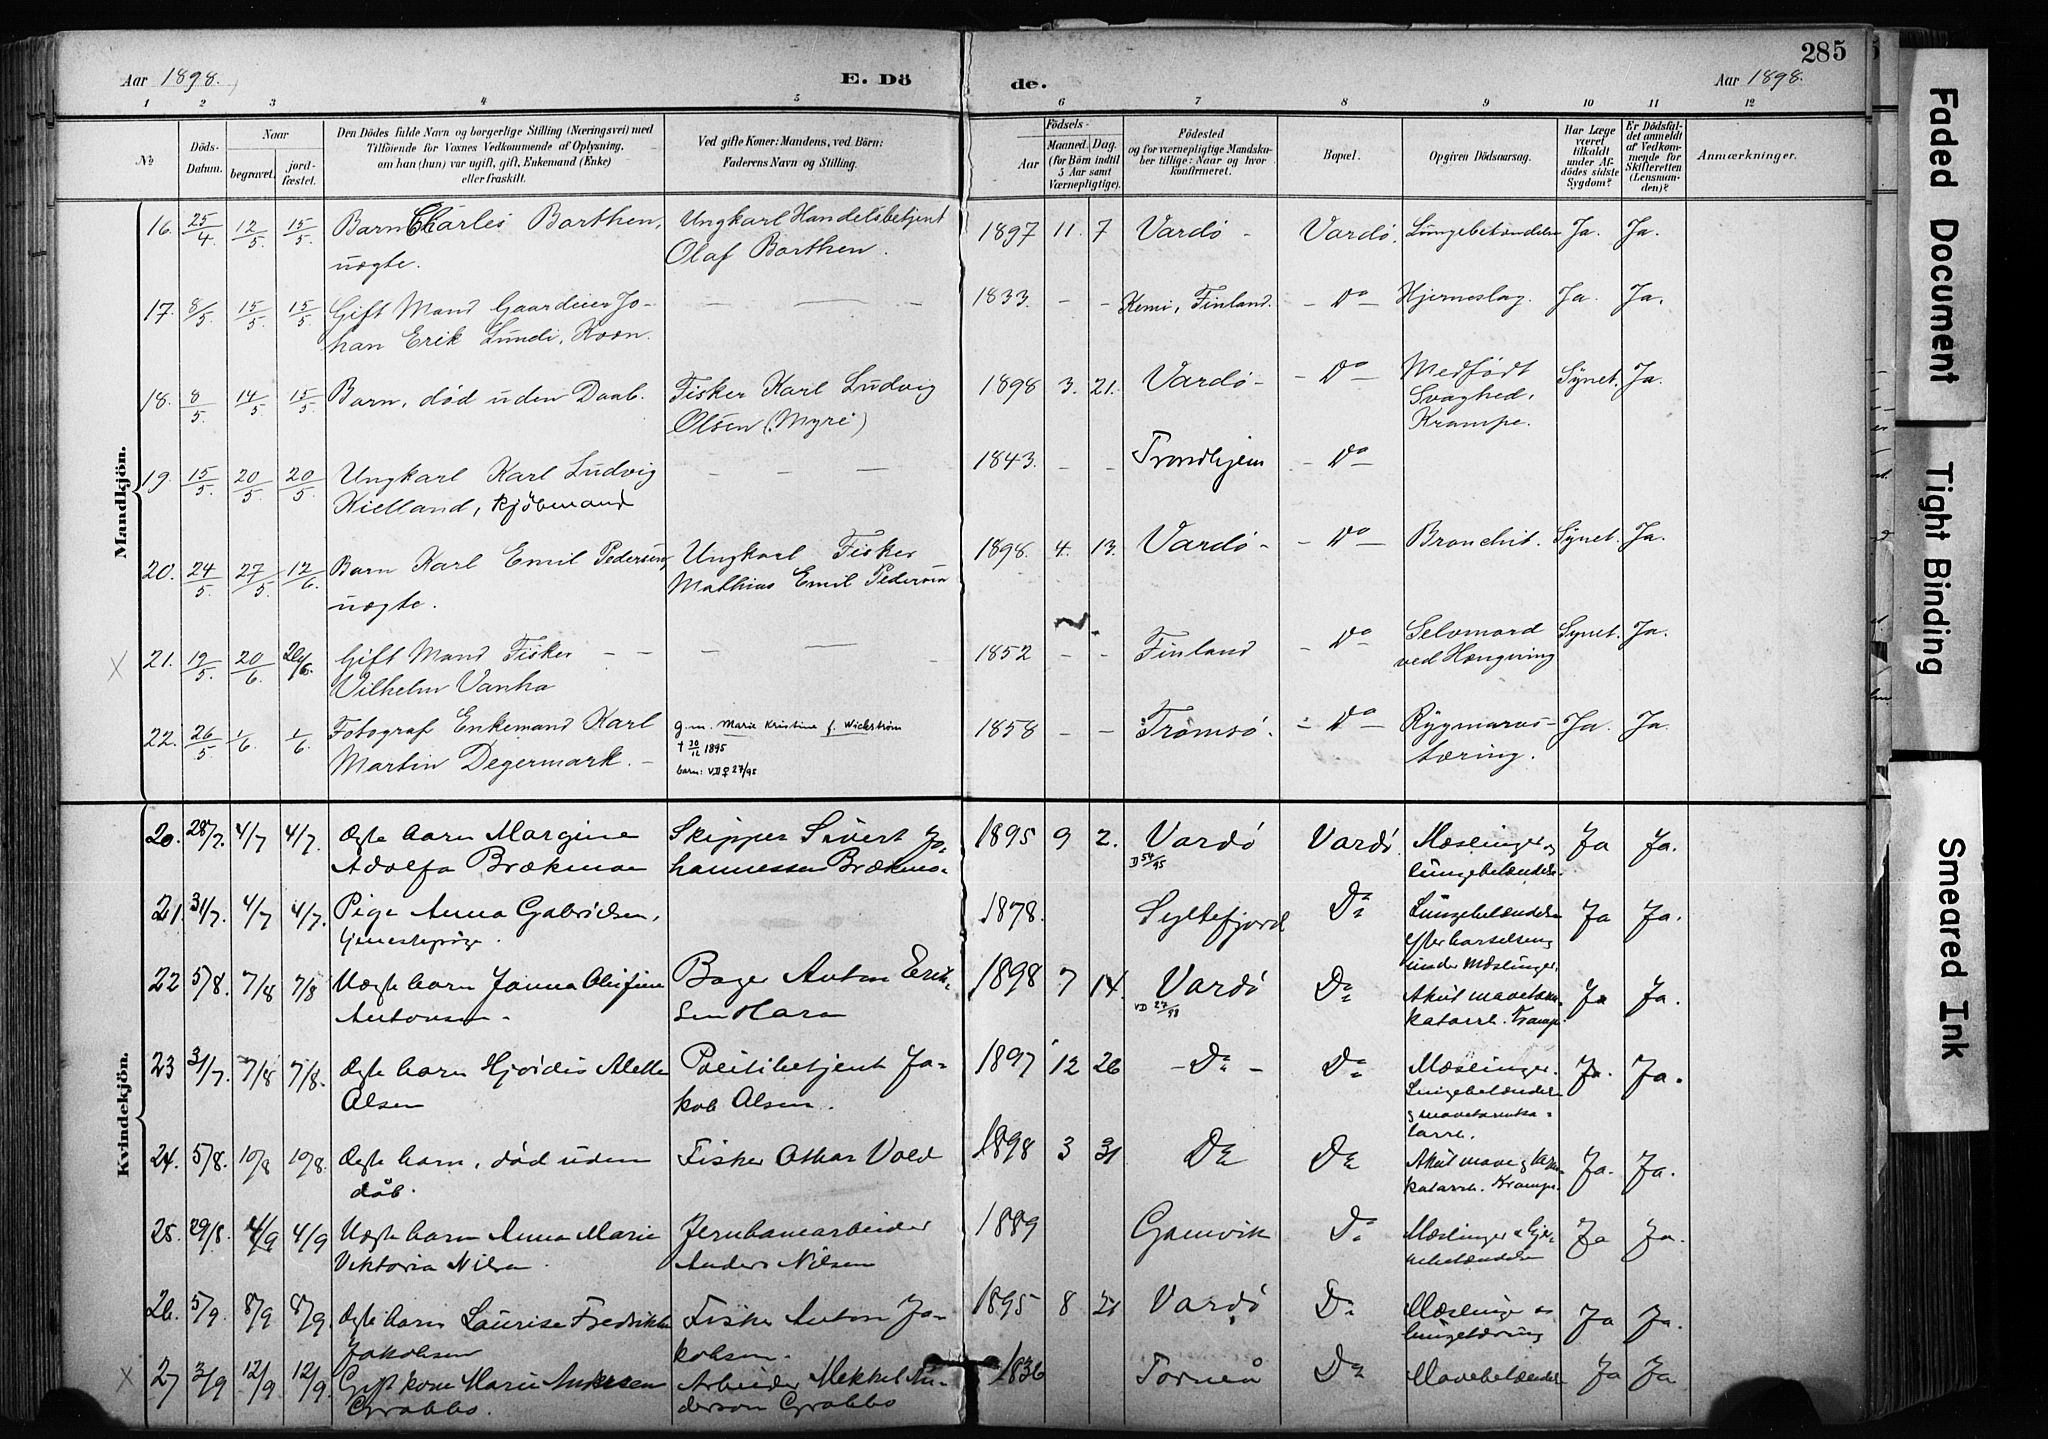 285
Aar 1898.
E. Dö
de.
Aar 1898.
1 2 3 4 5 6 7 8 9 10 11 12
№
Döds-
Datum.
Naar
begravet.
jord-
fæstet.
Den Dödes fulde Navn og borgerlige Stilling (Næringsvei) med
Tilföiende for Voxnes Vedkommende af Oplysning,
om han (hun) var ugift, gift, Enkemand (Enke)
eller fraskilt.
Ved gifte Koner: Mandens, ved Börn:
Faderens Navn og Stilling.
Födsels-
Aar
Maaned.
Dag.
(for Börn indtil
5 Aar samt
Værnepligtige).
Födested
og for værnepligtige Mandska-
ber tillige: Naar og hvor
konfirmeret.
Bopæl.
Opgiven Dödsaarsag.
Har Læge
været
tilkaldt
under Af-
dödes sidste
Sygdom?
Er Dödsfal-
det anmeldt
af Vedkom-
mende for
Skifteretten
(Lensman-
den)?
Anmærkninger.
Mandkjön.
16. 25/4 12/5 15/5 Barn Charles Barthen, Ungkarl Handelsbetjent 1897 11. 7 Vardö - Vardö. Lungebetændelse Ja. Ja.
uægte. Olaf Barthen.
17. 8/5 15/5 15/5 Gift Mand Gaardeier Jo- — — — 1833. - - Kemi, Finland. - Do - Hjerneslag. Ja. Ja.
han Erik Lundi, Kvæn.
18. 8/5 14/5 15/5 Barn, död uden Daab. Fisker Karl Ludvig 1898 3. 21. Vardö - - Do - Medfödt Synet. Ja.
Olsen (Myre) Svaghed,
Krampe.
19. 15/5 20/5 20/5 Ungkarl Karl Ludvig — — — 1843. - - Trondhjem - Do -
Kielland, Kjöbmand
20. 24/5. 27/5 12/6 Barn Karl Emil Pedersen, Ungkarl Fisker 1898. 4. 13. Vardö - - Do - Bronchit. Synet. Ja.
uægte. Mathias Emil Pedersen
21. 19/5. 20/6 Gift Mand Fisker — — 1852 - - Finland - Do Selvmord Synet. Ja.
Vilhelm Vanha ved Hængning
22. 26/5 1/6 1/6 Fotograf Enkemand Karl g.m. Marie Kristine f. Wickström 1858 - - Tromsö. - Do - Rygmarvs- Ja. Ja.
Martin Degermark. - † 30/12 1895 tæring.
barn: VD ♀ 27/95
Kvindekjön.
20. 28/7. 4/7 4/7. Ægte barn Margine Skipper Sivert Jo- 1895 9 2. Vardö Vardö. Mæslinger og Ja Ja.
Adolfa Brækmo Johannessen Brækmo. D 54/95 lungebetændelse
21. 31/7. 4/7 4/7. Pige Anna Gabrielsen, 1878. Syltefjord Do Lungebetændelse Ja Ja.
tjenestepige. efter barselseng
under mæslinger.
22 5/8. 7/8 7/8 Uægte barn Janna Olufine Bager Anton Erik- 1898 7 14. Vardö Do Akut mavetarm- Ja Ja.
Antonsen - sen Hara VD 27/98 katarrh. Krampe.
23 31/7. 7/8 7/8. Ægte barn Hjördis Alette Politibetjent Ja- 1897 12 26 - Do - Do Mæslinger. Ja. Ja.
Olsen kob Olsen. Lungebetændelse
og mavetarmka-
tarrh.
24. 5/8. 10/8 10/8. Ægte barn, död uden Fisker Othar Vold 1898 3 31 Do Do Akut mave og tarm- Ja. Ja.
dåb. katarrh. Krampe.
25. 29/8. 4/9 4/9 Uægte barn Anna Marie Jernbanearbeider 1889 Gamvik Do Mæslinger & Ja Ja.
Viktoria Nilsen. Anders Nilsen
26. 5/9. 8/9 8/9. Ægte barn Laurise Fredrikke Fisker Anton Ja- 1895 8 21 Vardö Do Mæslinger og Ja Ja.
Jakobsen kobsen. lungetæring
27 3/9 12/9 12/9. Gift kone Marie Andersen Arbeider Mekkel An- 1836 Torneå Do Mavebetændelse Ja Ja
Grabbo. derson Grabbo
Faded Document
Tight Binding
Smeared Ink